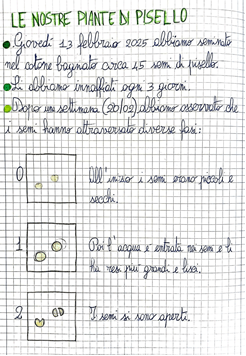 LE NOSTRE PIANTE DI PISELLO
Giovedì 13 febbraio 2025 abbiamo seminato
nel cotone bagnato circa 45 semi di pisello.
Li abbiamo innaffiati ogni 3 giorni.
Dopo una settimana (20/02) abbiamo osservato che
i semi hanno attraversato diverse fasi:
0
All'inizio i semi erano piccoli e
secchi.
1
Poi l'acqua è entrata nei semi e li
ha resi più grandi e lisci.
2
I semi si sono aperti.